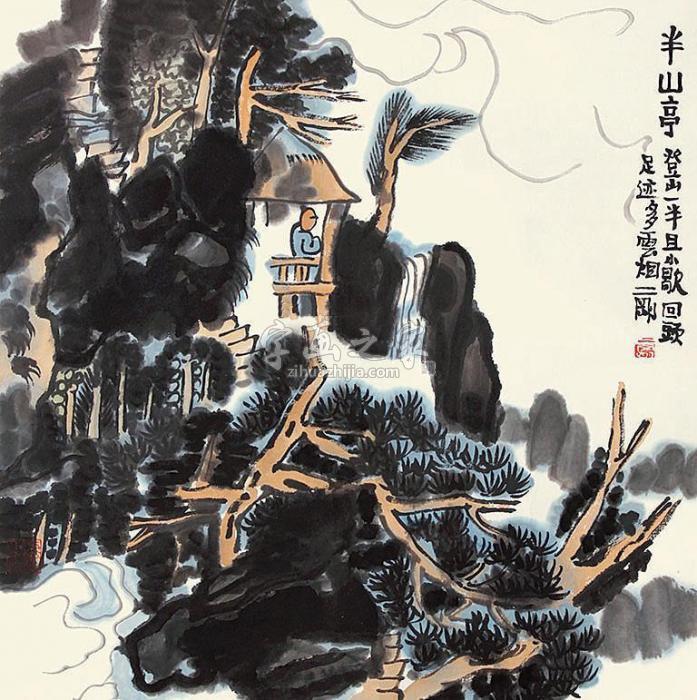 半山亭
登山一半且小歇回頭
足迹多雲烟二剛
字画之家
zihuazhijia.com